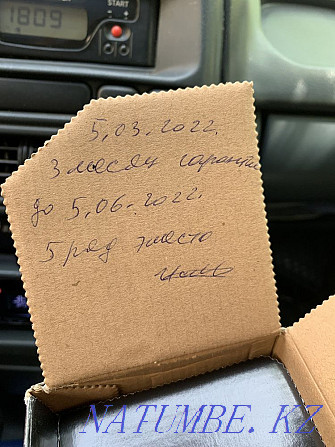 START
1809
5,03.2022.
3 месяц гарантия
до 5,06.2022.
5 ряд
NATUMBE.KZ